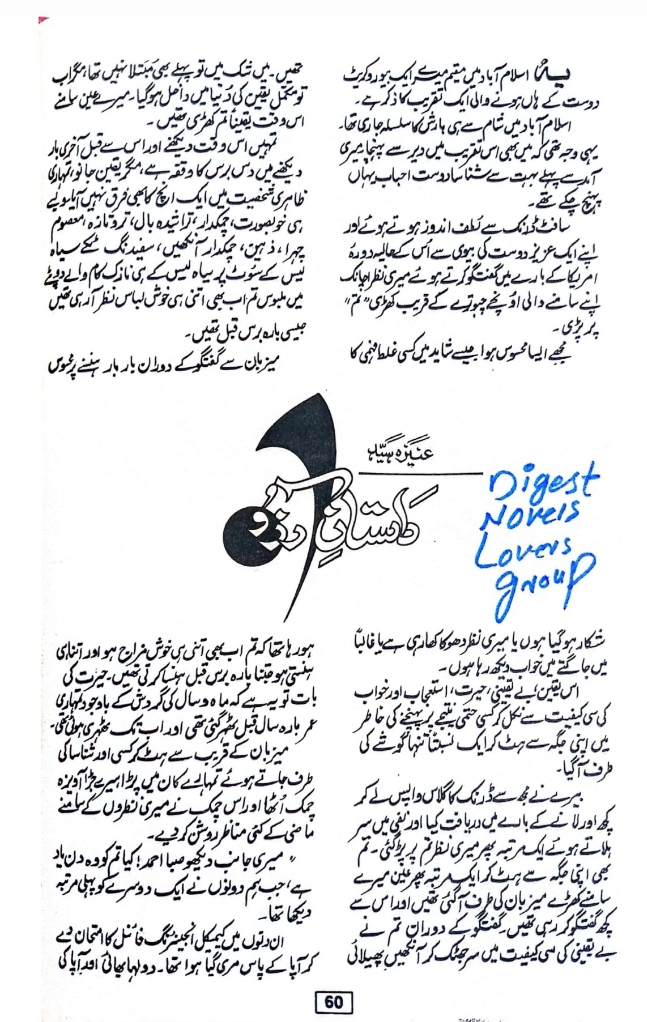 یہ اسلام آباد میں مقیم میرے ایک بیوروکریٹ
دوست کے ہاں ہونے والی ایک تقریب کا ذکر ہے۔
اسلام آباد میں شام سے ہی بارش کا سلسلہ جاری تھا۔
یہی وجہ تھی کہ میں بھی اس تقریب میں دیر سے پہنچا میری
آمد سے پہلے بہت سے شناسا دوست احباب یہاں
پہنچ چکے تھے۔
سافٹ ڈرنک سے لطف اندوز ہوتے ہوئے اور
اپنے ایک عزیز دوست کی بیوی سے اُس کے حالیہ دورۂ
امریکا کے بارے میں گفتگو کرتے ہوئے میری نظر اچانک
اپنے سامنے والی اونچے چبوترے کے قریب کھڑی "تم"
پر پڑی۔
مجھے ایسا محسوس ہوا جیسے شاید میں کسی غلط فہمی کا
شکار ہو گیا ہوں یا میری نظر دھوکا کھا رہی ہے یا غالباً
میں جاگتے میں خواب دیکھ رہا ہوں۔
اس یقین، بے یقینی، حیرت، استعجاب اور خواب
کی سی کیفیت سے نکل کر کسی حتمی نتیجے پر پہنچنے کی خاطر
میں اپنی جگہ سے ہٹ کر ایک نسبتاً تنہا گوشے کی
طرف آ گیا۔
بیرے نے مجھ سے ڈرنک کا گلاس واپس لے کر
کچھ اور لانے کے بارے میں دریافت کیا اور نفی میں سر
ہلاتے ہوئے ایک مرتبہ پھر میری نظر تم پر پڑ گئی۔ تم
بھی اپنی جگہ سے ہٹ کر ایک مرتبہ پھر عین میرے
سامنے کھڑے میزبان کی طرف آ گئی تھیں اور اس سے
کچھ گفتگو کر رہی تھیں۔ گفتگو کے دوران تم نے
بے یقینی کی سی کیفیت میں سر جھٹک کر آنکھیں پھیلائی
تھیں۔ میں شک میں تو پہلے بھی مبتلا نہیں تھا، مگر اب
تو مکمل یقین کی دُنیا میں داخل ہو گیا۔ میرے عین سامنے
اس وقت یقیناً تم کھڑی تھیں۔
تمہیں اس وقت دیکھنے اور اس سے قبل آخری بار
دیکھنے میں دس برس کا وقفہ ہے، مگر یقین جانو تمہاری
ظاہری شخصیت میں ایک انچ کا بھی فرق نہیں آیا ویسے
ہی خوبصورت، چمکدار، تراشیدہ بال، تروتازہ، معصوم
چہرا، ذہین، چمکدار آنکھیں، سفید نگ ٹکے سیاہ
لیس کے سُوٹ پر سیاہ لیس کے ہی نازک کام والے دوپٹے
میں ملبوس تم اب بھی اتنی ہی خوش لباس نظر آ رہی تھیں
جیسی بارہ برس قبل تھیں۔
میزبان سے گفتگو کے دوران بار بار ہنسنے پر محسوس
ہو رہا تھا کہ تم اب بھی اتنی ہی خوش مزاج ہو اور اتنا ہی
ہنستی ہو جتنا بارہ برس قبل ہنسا کرتی تھیں۔ حیرت کی
بات تو یہ ہے کہ ماہ و سال کی گردش کے باوجود تمہاری
عمر بارہ سال قبل ٹھہر گئی تھی اور اب تک ٹھہری ہوئی تھی۔
میزبان کے قریب سے ہٹ کر کسی اور شناسا کی
طرف جاتے ہوئے تمہارے کان میں پڑا ہیرے جڑا آویزہ
چمک اُٹھا اور اس چمک نے میری نظروں کے سامنے
ماضی کے کئی مناظر روشن کر دیے۔
"میری جانب دیکھو صبا احمد! کیا تم کو وہ دن یاد
ہے، جب ہم دونوں نے ایک دوسرے کو پہلی مرتبہ
دیکھا تھا۔
ان دنوں میں کیمیکل انجینئرنگ فائنل کا امتحان دے
کر آپا کے پاس مری گیا ہوا تھا۔ دولہا بھائی اور آپا کی
عنیزہ سیّد
Digest
Novels
Lovers
group
60